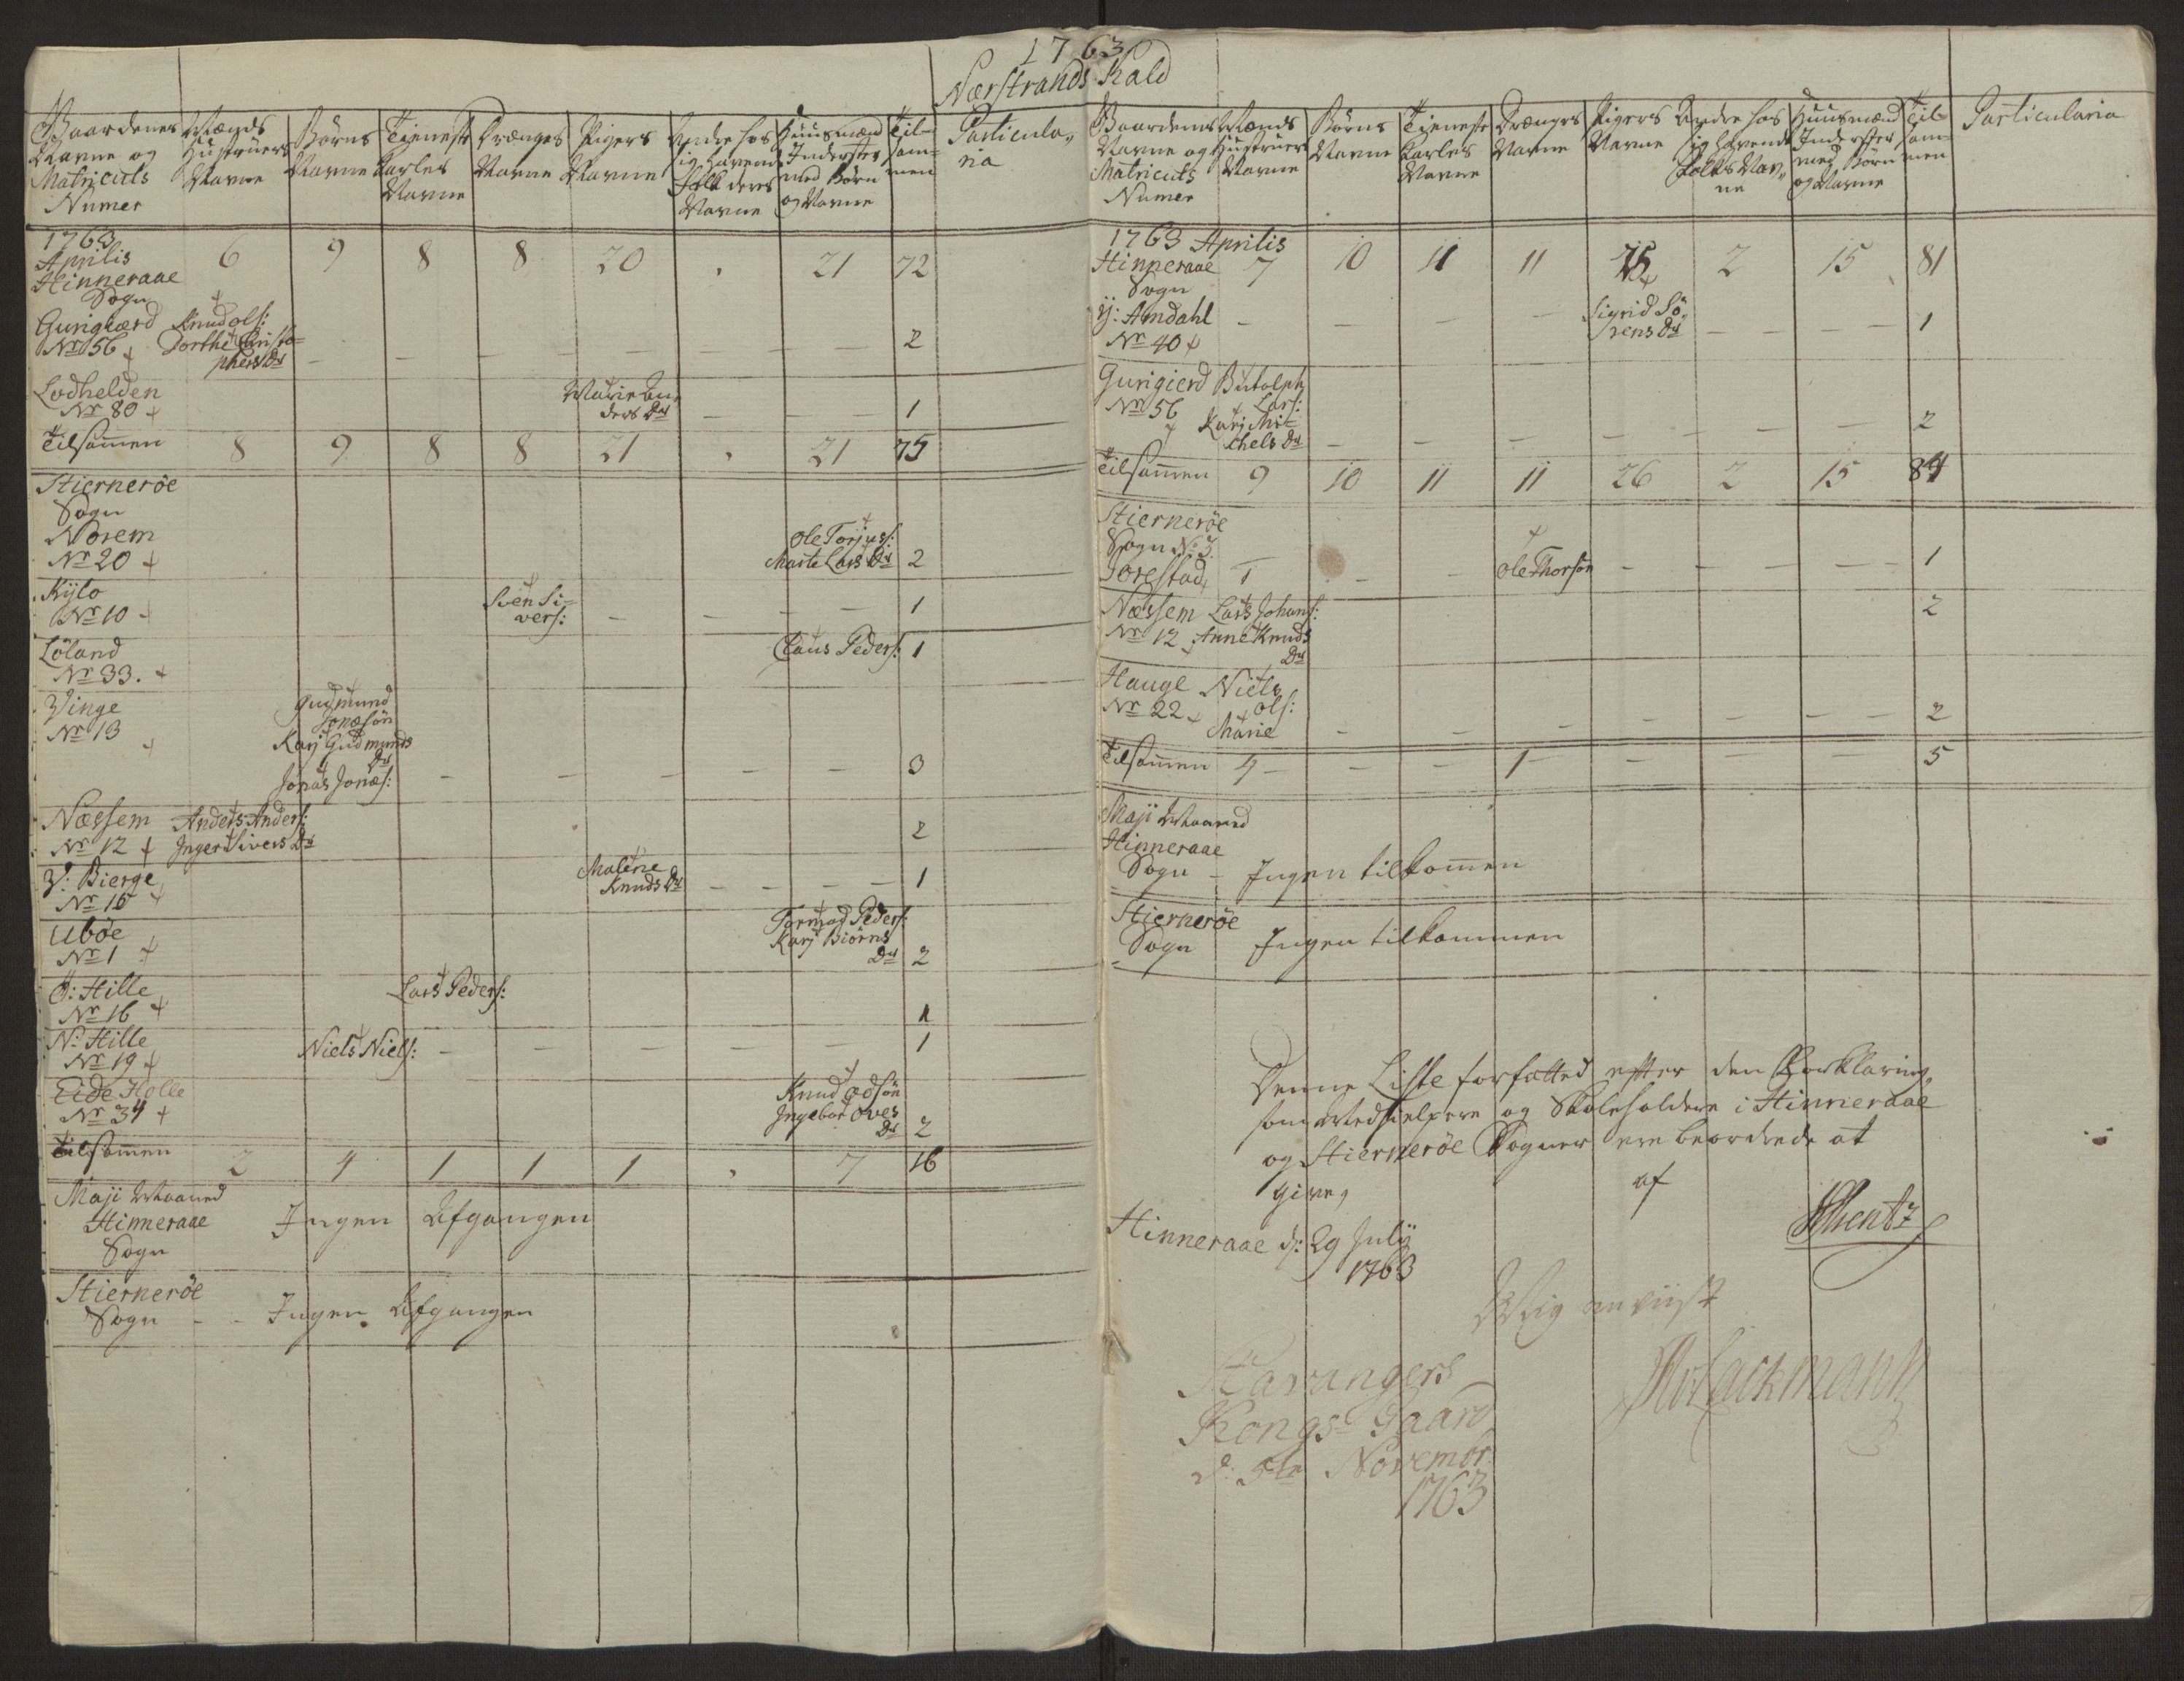 1763
Nærstrands Kald
Gaardenes Navne og Matriculs Numer | Mænds Hustruers Navne | Börns Navne | Tieneste Karles Navne | Drænges Navne | Pigers Navne | Andre hos sig havende Folk deres Navne | Huusmænd Inderster med Börn og Navne | Tilsammen | Particularia
1763 Aprilis Hinneraae Sogn | 6 | 9 | 8 | 8 | 20 | . | 21 | 72
Gurigiærd Nr 56 | Knud Ols: Dorthe Christophers Dr | – | – | – | – | – | – | 2
Lodhelden Nr 80 | Marie Anders Dr | – | – | – | 1
Tilsammen | 8 | 9 | 8 | 8 | 21 | . | 21 | 75
Stierneröe Sogn
Norem Nr 20 | Ole Torjus: Marte Lars Dr | 2
Kÿlo Nr 10 | Sven Sivers: | – | – | – | 1
Löland Nr 33. | Claus Peders: | 1
Vinge Nr 13 | Gudmund Jonæsön Karj Gudmunds Dr Jonas Jonæs: | – | – | – | – | – | 3
Næssem Nr 12 | Anders Anders: Inger Sivers Dr | 2
V: Bierge Nr 16 | Malene Knuds Dr | – | – | – | – | 1
Uböe Nr 1 | Tormod Peders: Karj Biörns Dr | 2
Ö: Hille Nr 16 | Lars Peders: | 1
N: Hille Nr 19 | Niels Niels: | – | – | – | – | – | 1
Eide Holle Nr 34 | Knud Odsön Ingebor Oves Dr | 2
Tilsammen | 2 | 4 | 1 | 1 | 1 | . | 7 | 16
Maji Maaned Hinneraae Sogn | Ingen Afgangen
Stierneröe Sogn – – Ingen Afgangen
Gaardenes Navne og Matriculs Numer | Mænds Hustruers Navne | Börns Navne | Tieneste Karles Navne | Drænges Navne | Pigers Navne | Andre hos sig havende Folks Navne | Huusmænd Inderster med Börn og Navne | Tilsammen | Particularia
1763 Aprilis Hinneraae Sogn | 7 | 10 | 11 | 11 | 25 | 2 | 15 | 81
Y: Amdahl Nr 40 | – | – | – | – | Sigrid Sörens Dr | – | – | – | 1
Gurigierd Nr 56 | Butolph Lars: Karj Michels Dr | – | – | – | – | – | – | – | 2
Tilsammen | 9 | 10 | 11 | 11 | 26 | 2 | 15 | 84
Stierneröe Sogn No 3.
Jorestad | – | – | Ole Thorsön | – | – | – | – | 1
Næssem Nr 12 | Lars Johans: Anne Knuds Dr | 2
Hauge Nr 22 | Niels Ols: Marie | – | – | – | – | – | – | 2
Tilsammen | 4 | – | – | 1 | – | – | – | 5
Maji Maaned Hinneraae Sogn – Ingen tilkommen
Stierneröe Sogn Ingen tilkommen
Denne Liste forfatted efter den Forklaring,
som Medhielpere og Skoleholdere i Hinneraae
og Stierneröe Sogner ere beordrede at
give, af
Hinneraae d: 29 Julÿ
1763
Mig anviist
Stavangers
Kongs-Gaard
d: 5te Novembr:
1763